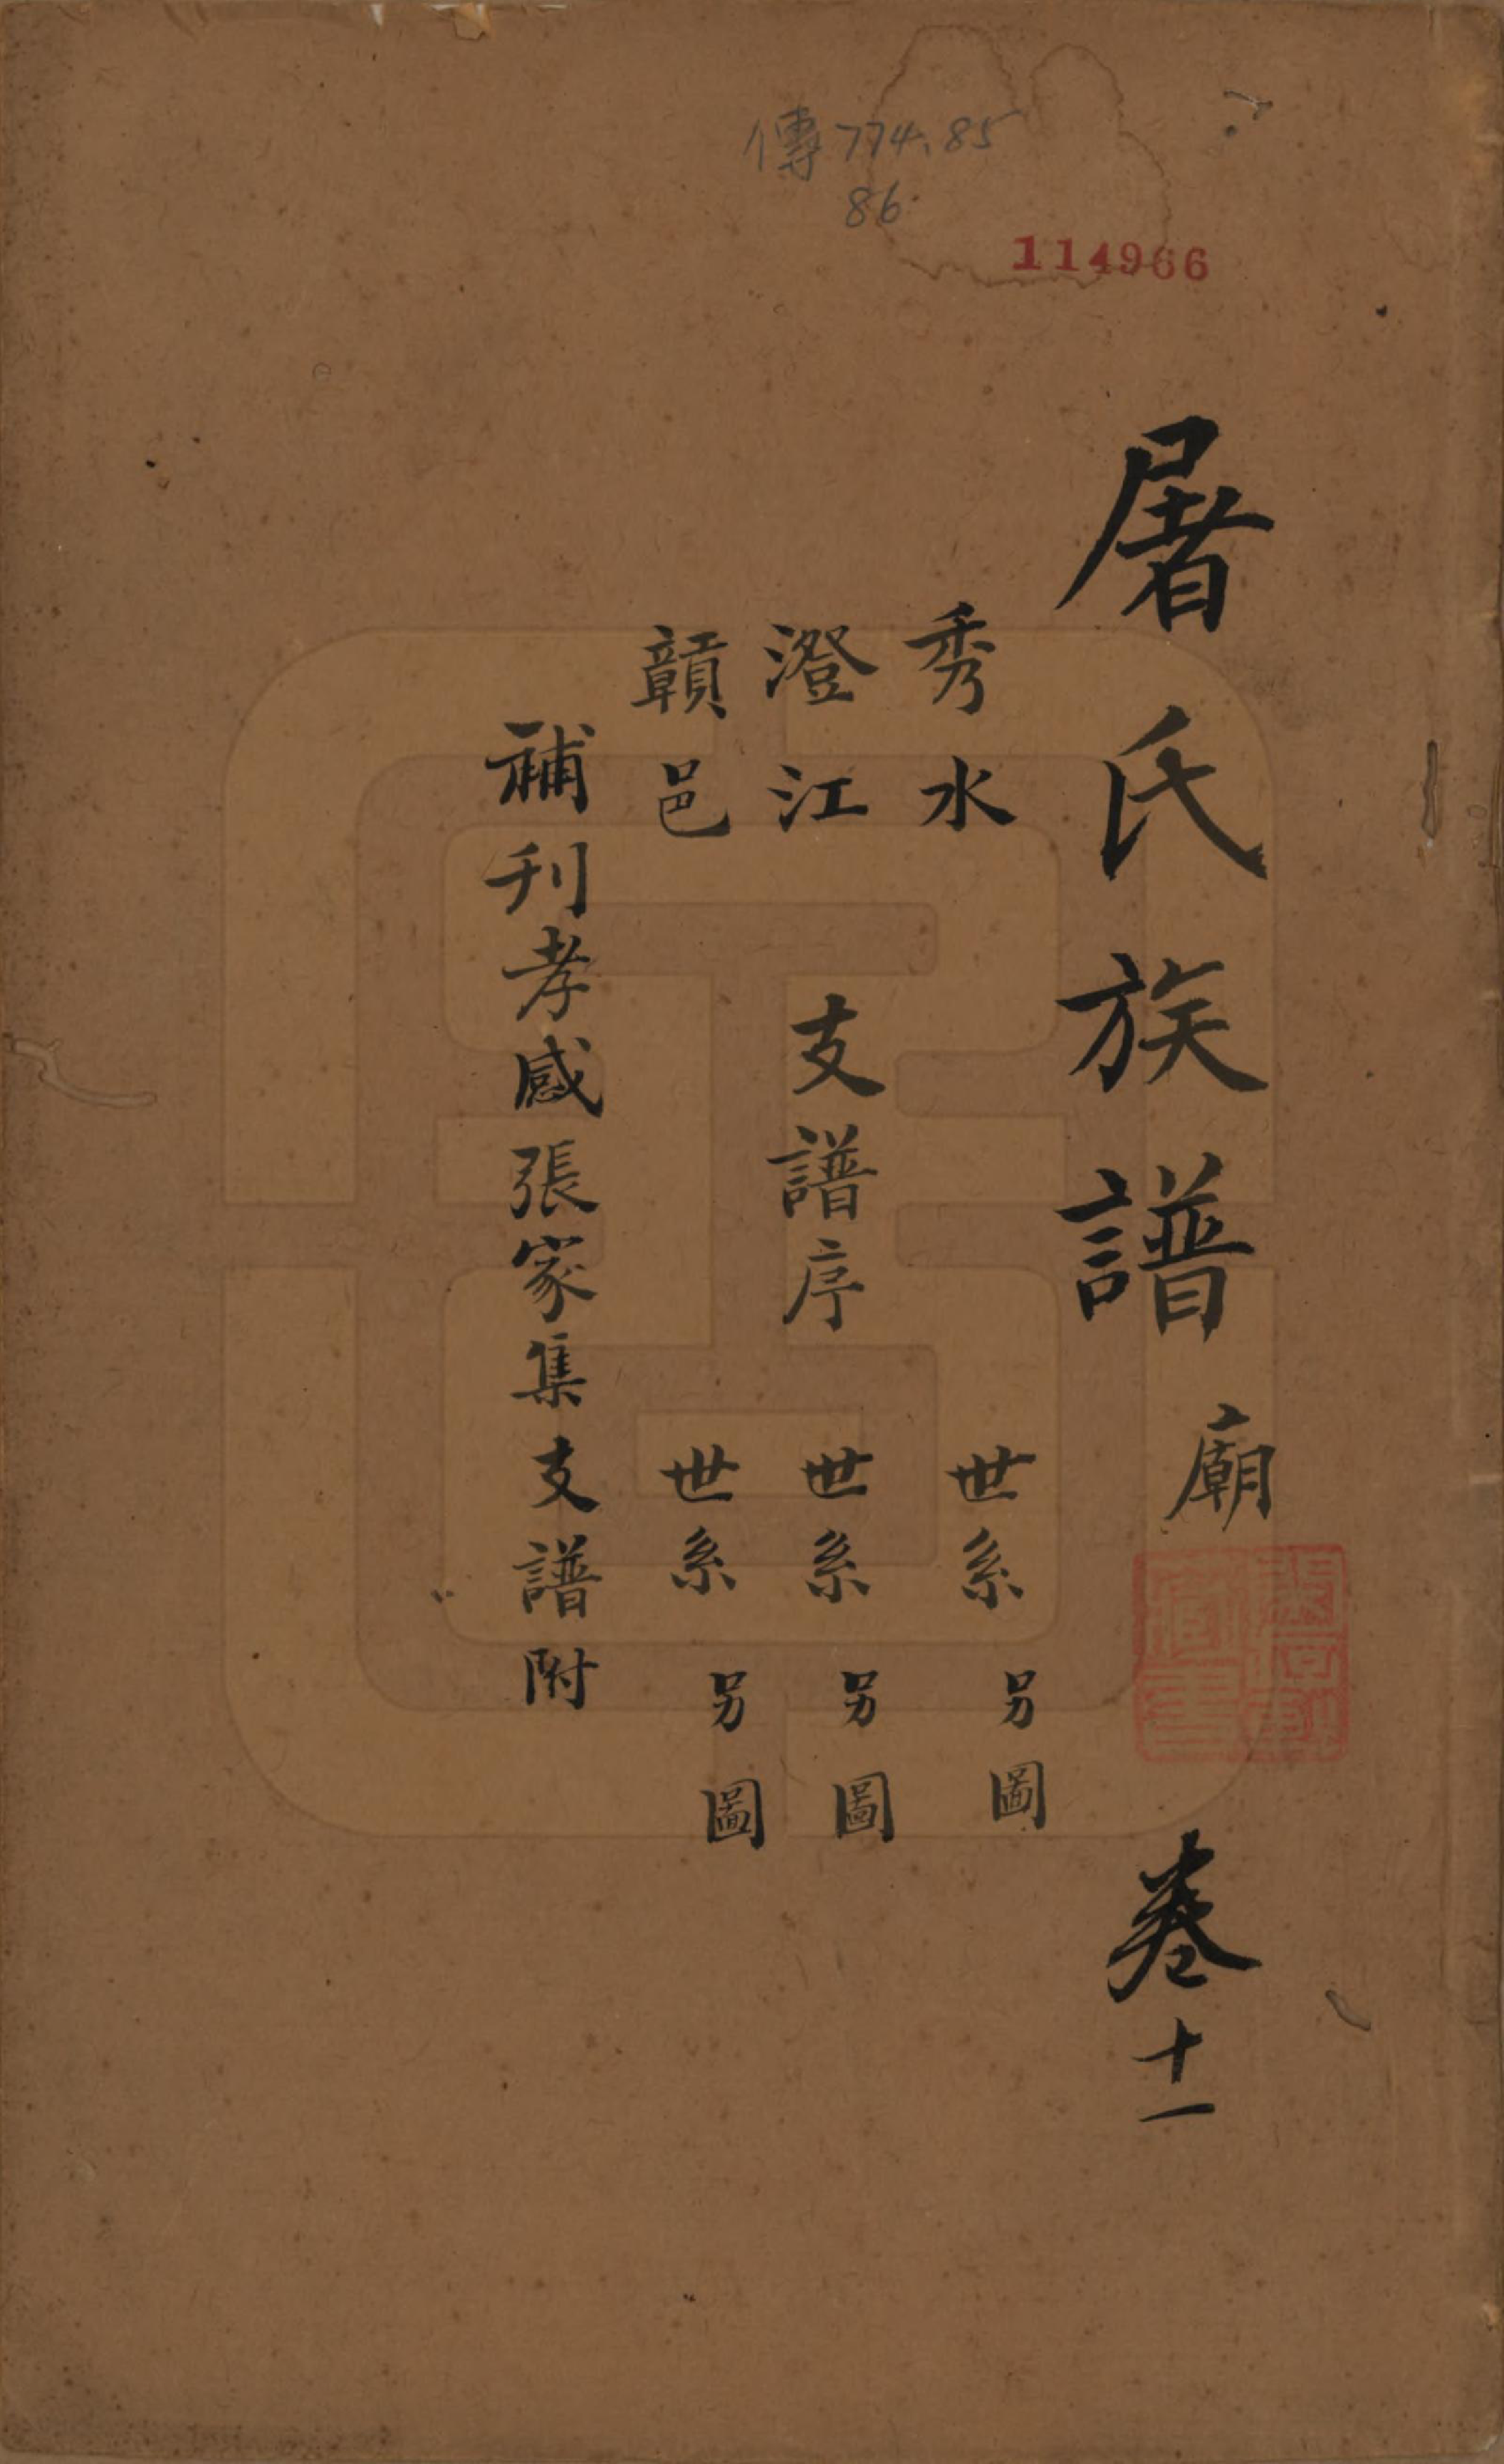 傳774.85
86
114966
屠氏族譜 廟 卷十一
秀水 世系 另圖
澄江 支譜序 世系 另圖
贛邑 世系 另圖
補刊孝感張家集支譜附